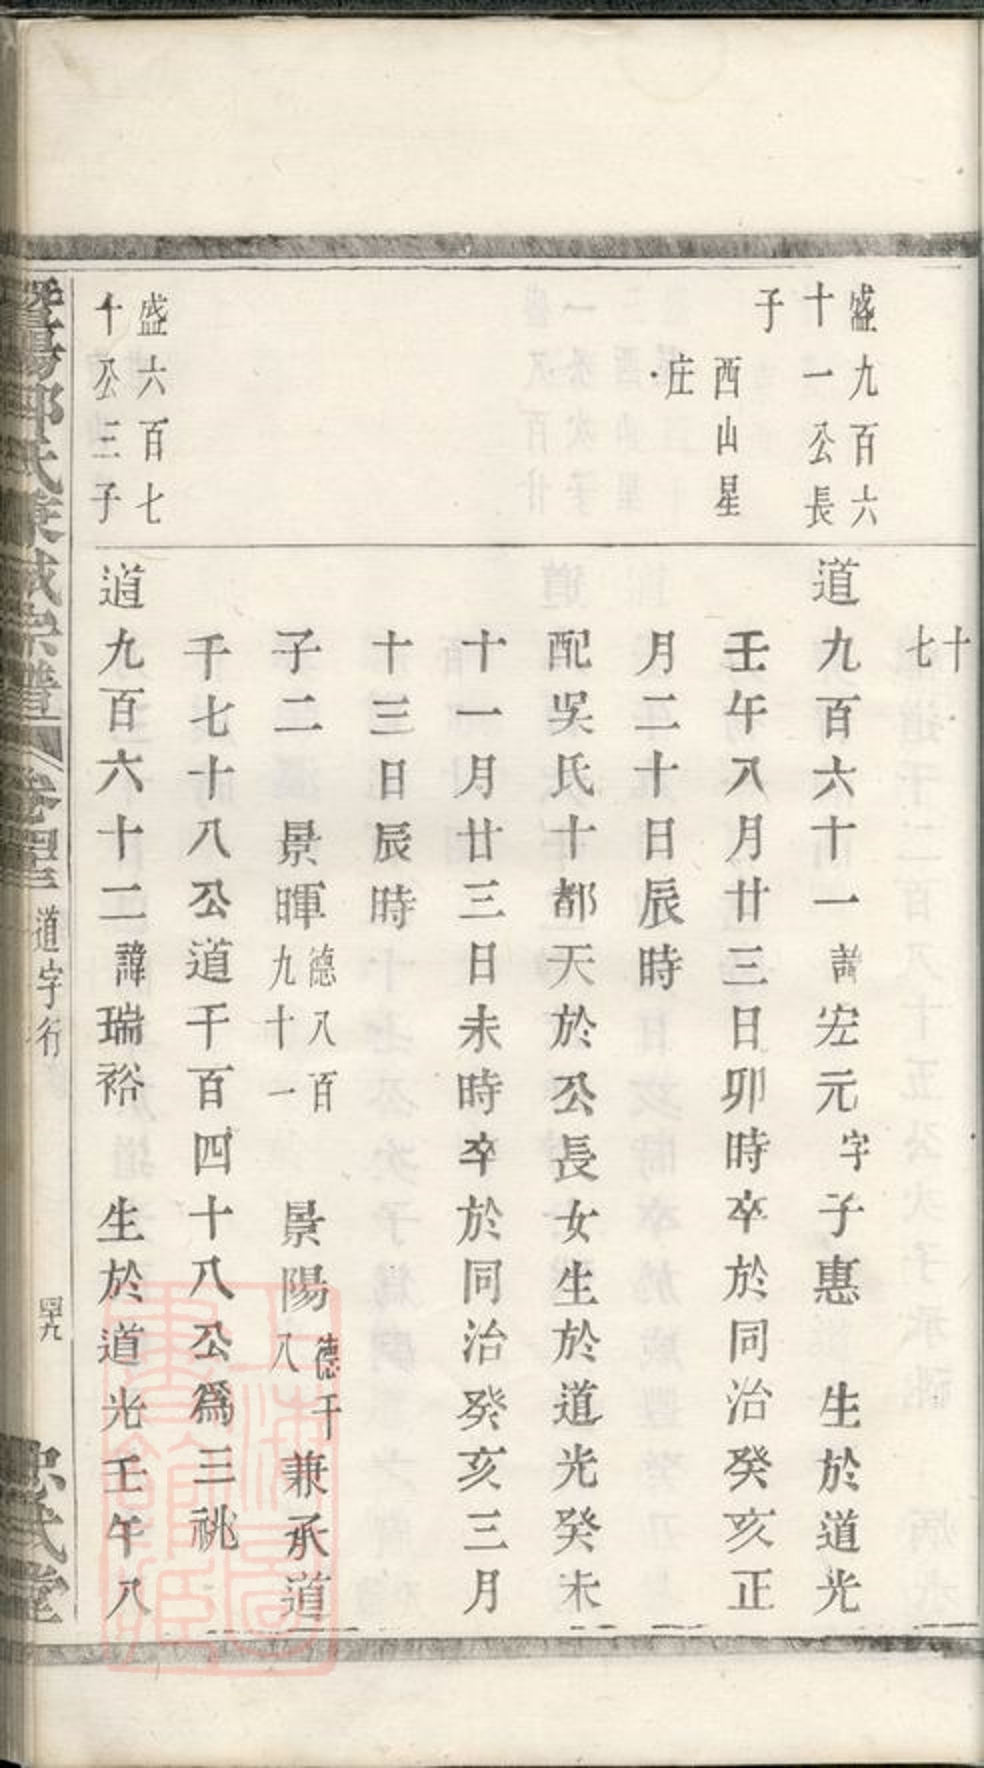 十
七
盛九百六
十一公長
子
西山星
庄
道九百六十一諱宏元字子惠 生於道光
壬午八月廿三日卯時卒於同治癸亥正
月二十日辰時
配吳氏十都天於公長女生於道光癸未
十一月廿三日未時卒於同治癸亥三月
十三日辰時
子二 景暉德八百九十一 景陽德千八兼承道
千七十八公道千百四十八公爲三祧
盛六百七
十公三子
道九百六十二諱瑞裕 生於道光壬午八
暨陽邵氏宗譜 卷四 道字行 四十九
忠武堂
上海圖書館藏